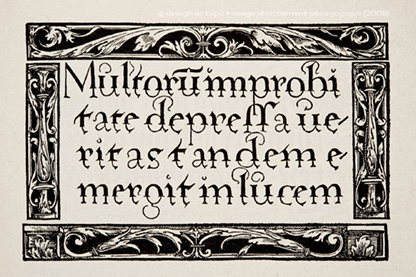 Multorū improbi
tate depressa ve-
ritas tandem e-
mergit in lucem